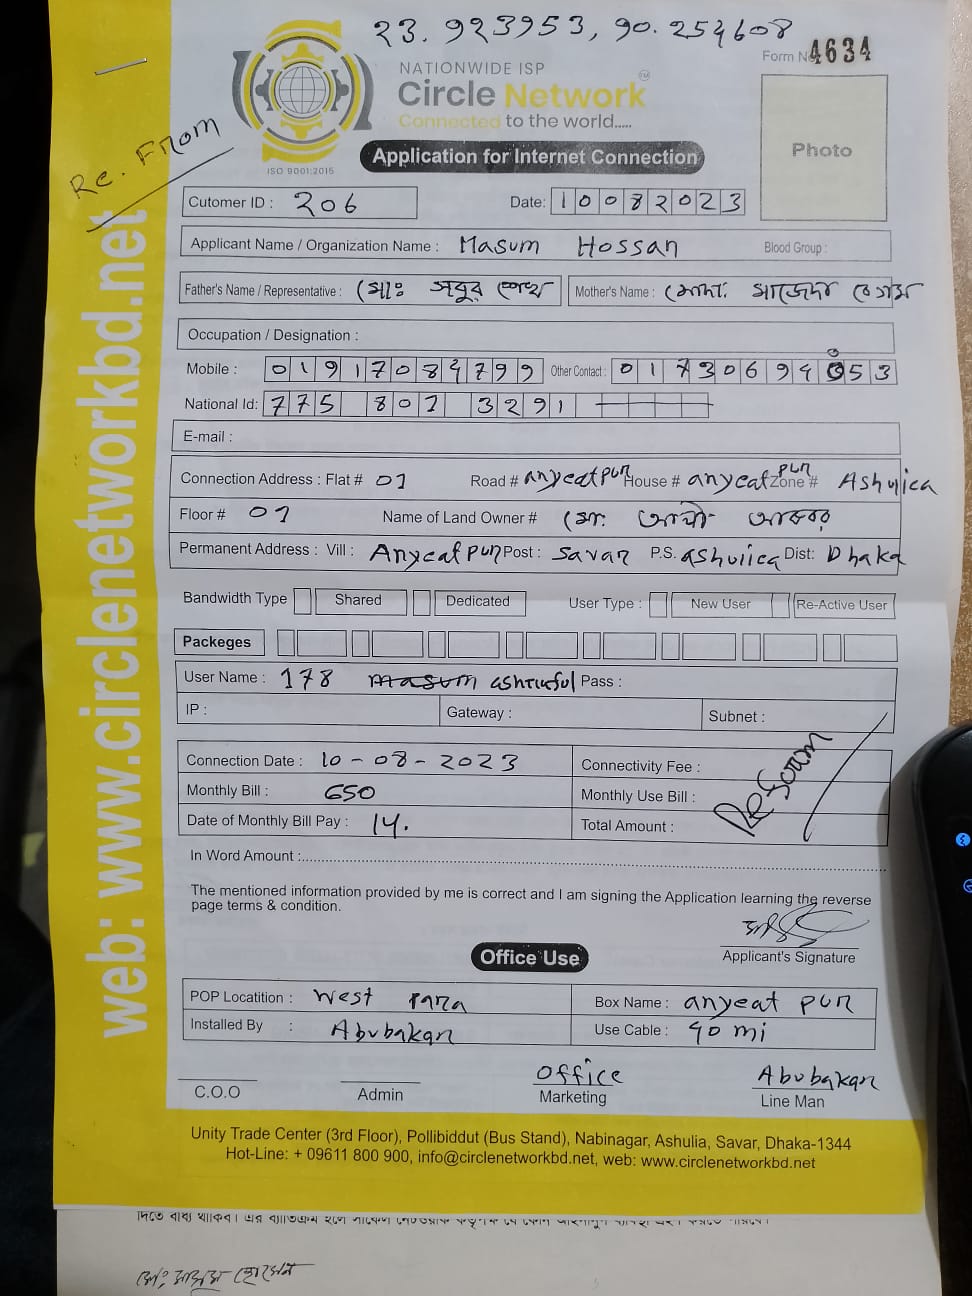 23.923953, 90.254608
Form N 4634
NATIONWIDE ISP
Circle Network
Connected to the world.....
ISO 9001:2015
Re. From
Application for Internet Connection
Photo
Cutomer ID : 206 Date: 10082023
Applicant Name / Organization Name : Masum Hossan Blood Group :
Father's Name / Representative : মোঃ সবুর শেখ Mother's Name : মোসা: সাজেদা বেগম
Occupation / Designation :
Mobile : 01917084799 Other Contact : 01730694053
National Id: 775 801 3291
E-mail :
Connection Address : Flat # 01 Road # anyeatpur House # anyeatpur Zone # Ashulica
Floor # 01 Name of Land Owner # মো.
Permanent Address : Vill : Anyeatpur Post : Savar P.S. ashulica Dist: Dhaka
Bandwidth Type Shared Dedicated User Type : New User Re-Active User
Packeges
User Name : 178 masum ashraful Pass :
IP : Gateway : Subnet :
Connection Date : 10-08-2023 Connectivity Fee :
Monthly Bill : 650 Monthly Use Bill :
Date of Monthly Bill Pay : 14. Total Amount :
In Word Amount :
The mentioned information provided by me is correct and I am signing the Application learning the reverse
page terms & condition.
Applicant's Signature
Office Use
POP Locatition : West para Box Name : anyeat pur
Installed By : Abubakar Use Cable : 90 mi
C.O.O Admin Office Marketing Abubakar Line Man
Unity Trade Center (3rd Floor), Pollibiddut (Bus Stand), Nabinagar, Ashulia, Savar, Dhaka-1344
Hot-Line: + 09611 800 900, info@circlenetworkbd.net, web: www.circlenetworkbd.net
web: www.circlenetworkbd.net
মো: মাসুম হোসেন